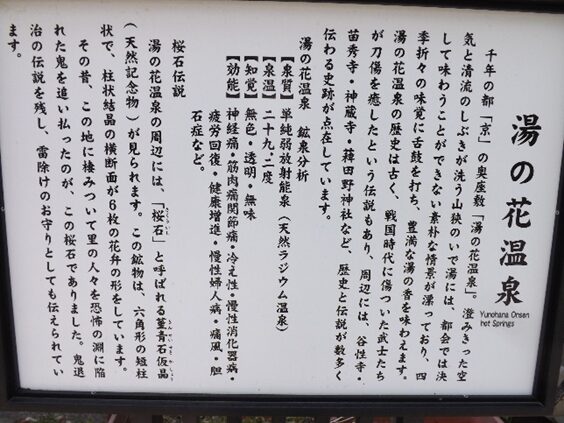 湯の花温泉
Yunohana Onsen
hot Springs
千年の都「京」の奥座敷「湯の花温泉」。澄みきった空
気と清流のしぶきが洗う山狭のいで湯には、都会では決
して味わうことができない素朴な情景が漂っており、四
季折々の味覚に舌鼓を打ち、豊満な湯の香を味わえます。
湯の花温泉の歴史は古く、戦国時代に傷ついた武士たち
が刀傷を癒したという伝説もあり、周辺には、谷性寺・
苗秀寺・神蔵寺・薭田野神社など、歴史と伝説が数多く
伝わる史跡が点在しています。
湯の花温泉 鉱泉分析
【泉質】単純弱放射能泉(天然ラジウム温泉)
【泉温】二十九・二度
【知覚】無色・透明・無味
【効能】神経痛・筋肉痛関節痛・冷え性・慢性消化器病・
疲労回復・健康増進・慢性婦人病・痛風・胆
石症など。
桜石伝説
湯の花温泉の周辺には、「桜石」と呼ばれる菫青石仮晶
(天然記念物)が見られます。この鉱物は、六角形の短柱
状で、柱状結晶の横断面が6枚の花弁の形をしています。
その昔、この地に棲みついて里の人々を恐怖の淵に陥
れた鬼を追い払ったのが、この桜石でありました。鬼退
治の伝説を残し、雷除けのお守りとしても伝えられてい
ます。